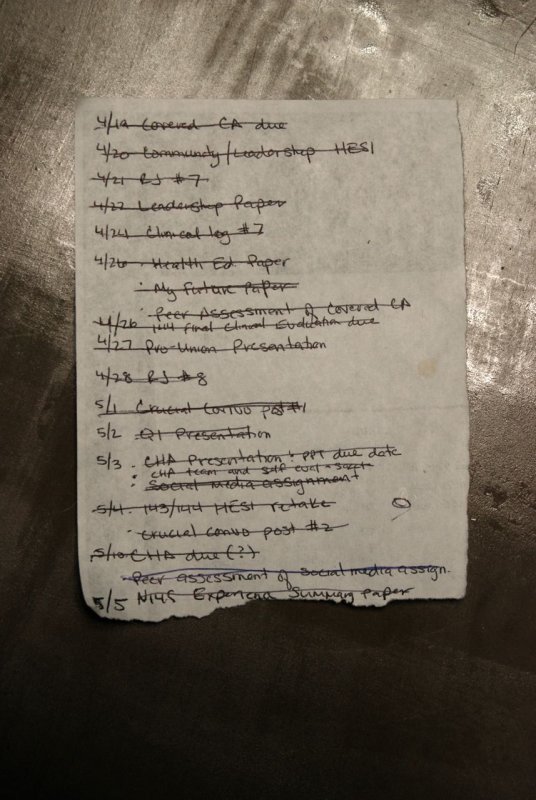 4/19 Covered CA due
4/20 Community/Leadership HESI
4/21 RJ #7
4/22 Leadership Paper
4/24 Clinical log #7
4/26 · Health Ed. Paper
· My Future Paper
· Peer Assessment of Covered CA
4/26 144 Final Clinical Evaluation due
4/27 Pro-Union Presentation
4/28 RJ #8
5/1 Crucial convo post #1
5/2 QI Presentation
5/3 · CHA Presentation + PPT due date
· CHA team and self eval
· Social media assignment
5/4 · 143/144 HESI retake
· Crucial convo post #2
5/10 CHA due (?)
· Peer assessment of social media assign.
5/5 N145 Experience Summary paper